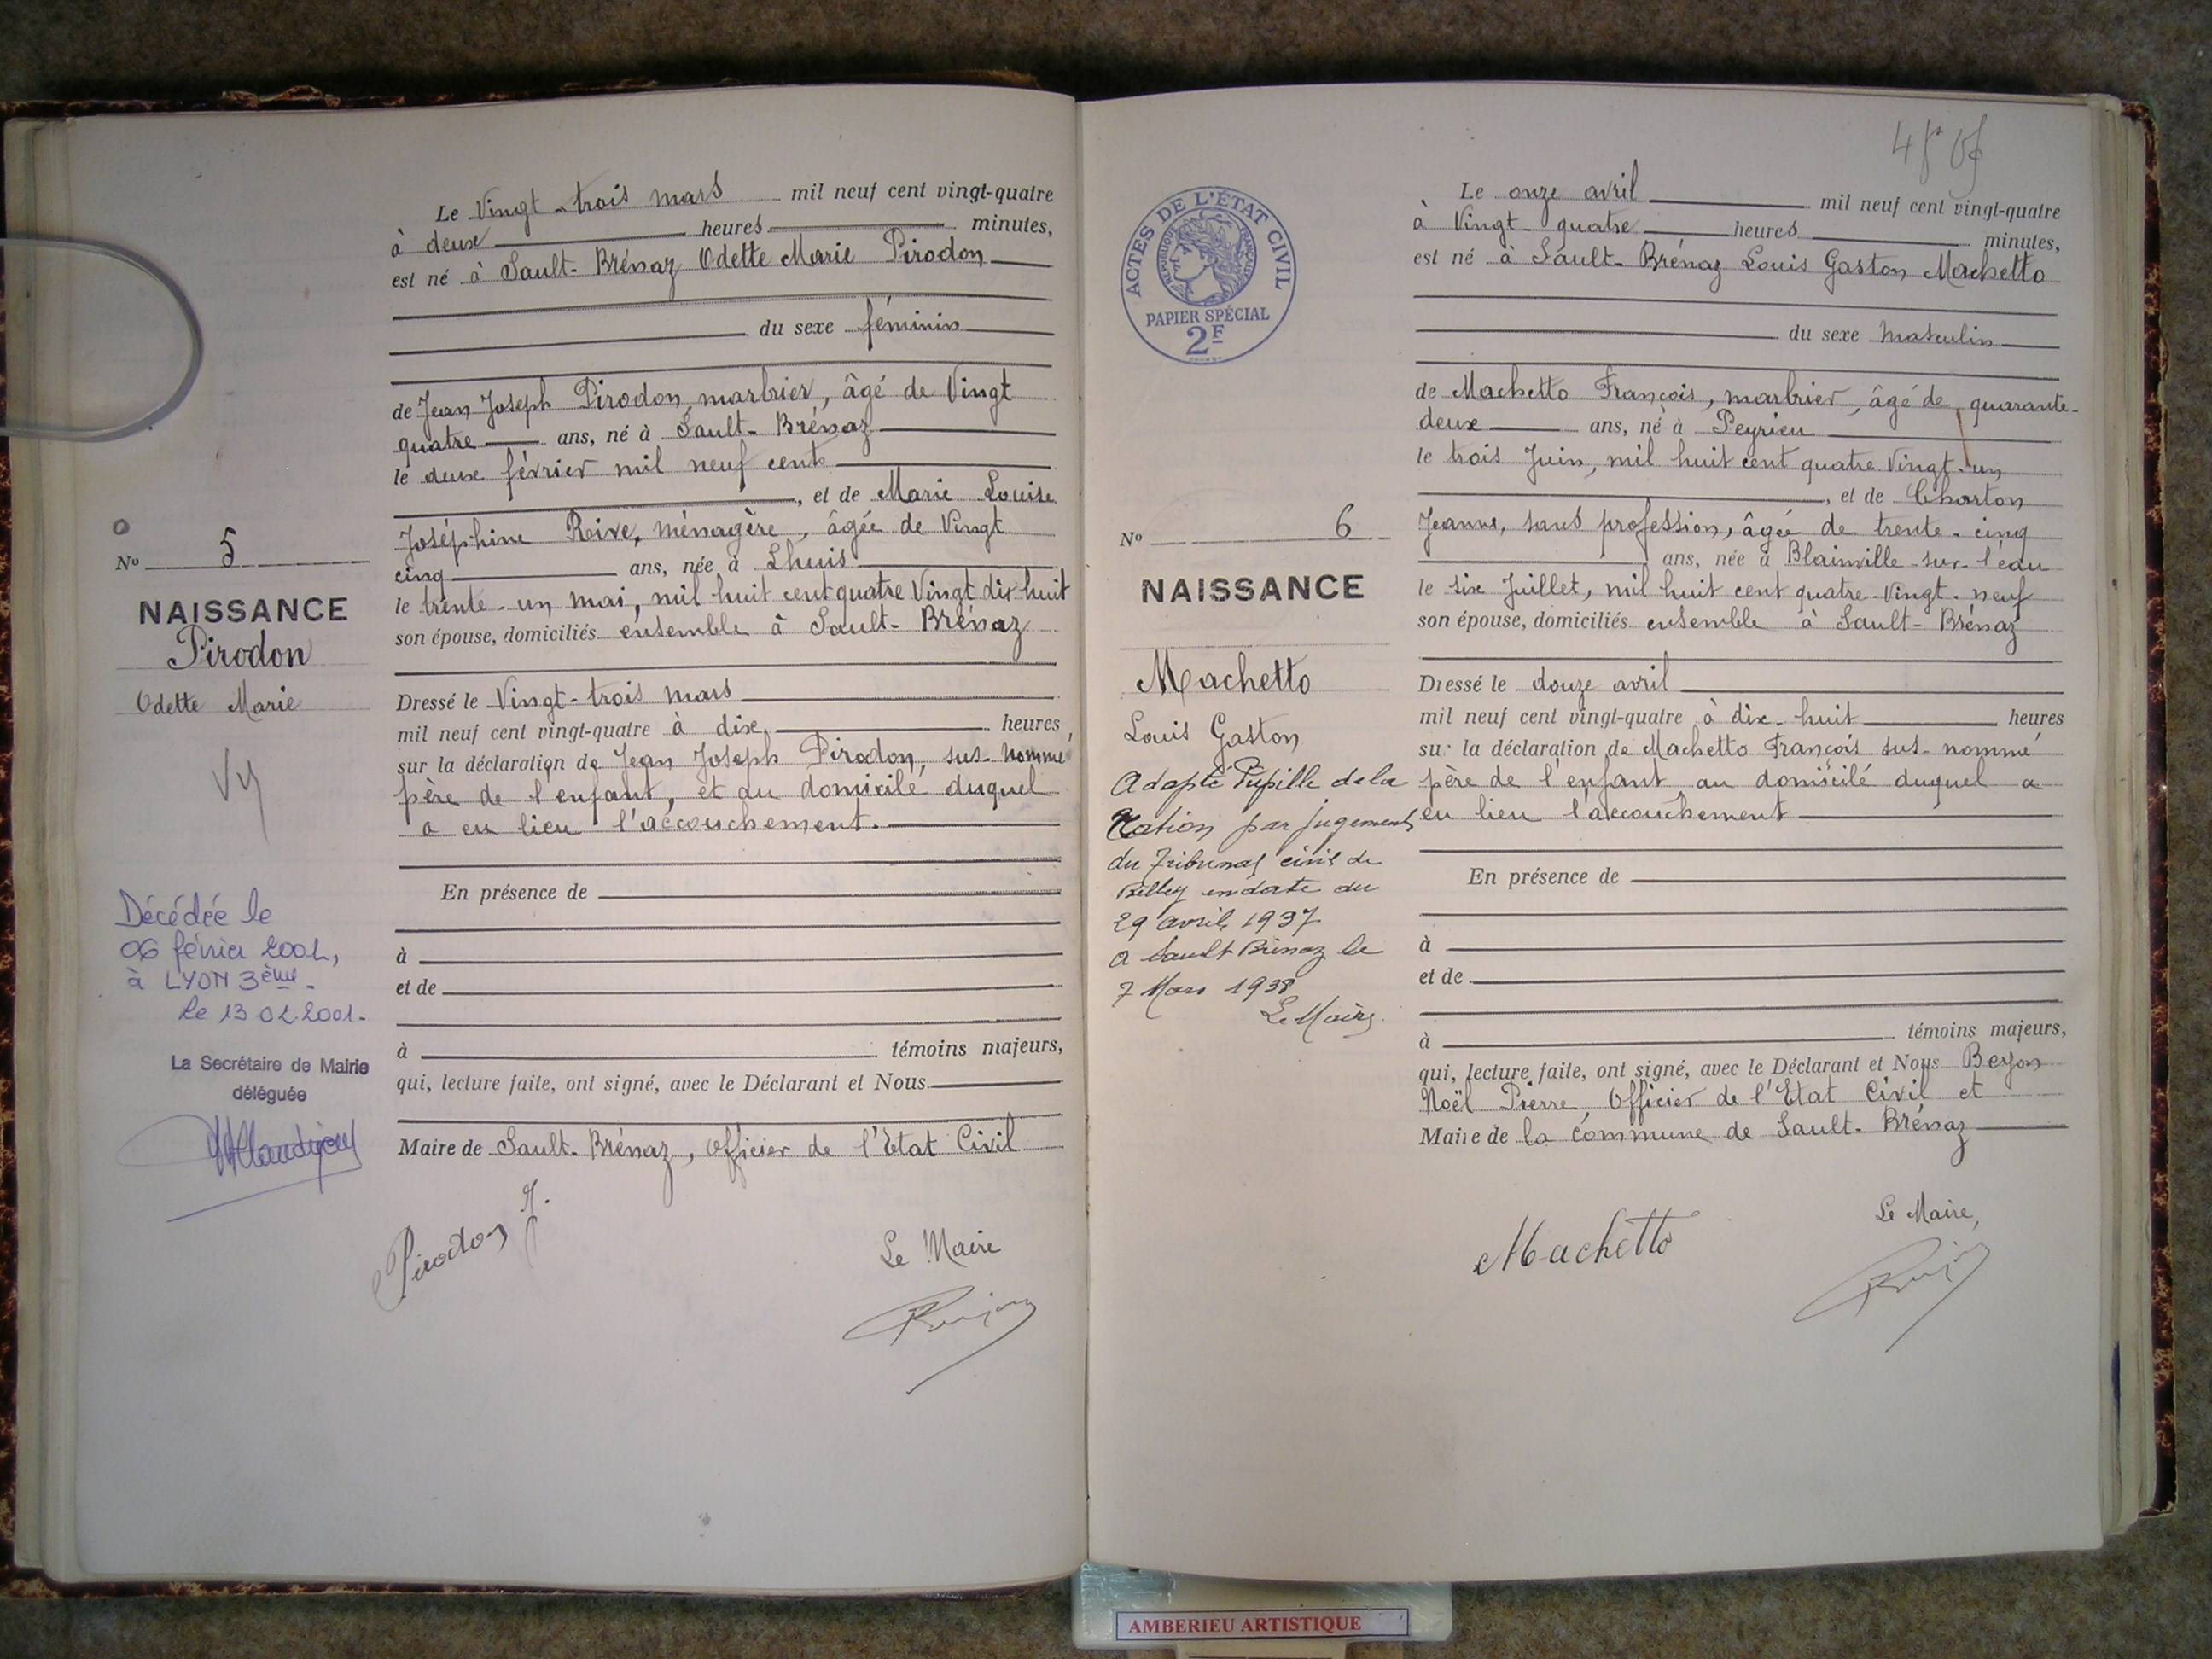 Le Vingt-trois mars mil neuf cent vingt-quatre
à deux heures minutes,
est né à Sault-Brénaz Odette Marie Pirodon
du sexe féminin
de Jean Joseph Pirodon, marbrier, âgé de Vingt
quatre ans, né à Sault-Brénaz
le deux février mil neuf cent
, et de Marie Louise
Joséphine Reive, ménagère, âgée de Vingt
cinq ans, née à Lhuis
le trente-un mai, mil huit cent quatre Vingt dix-huit
son épouse, domiciliés ensemble à Sault-Brénaz
Dressé le Vingt-trois mars
mil neuf cent vingt-quatre à dix heures,
sur la déclaration de Jean Joseph Pirodon, sus-nommé
père de l'enfant, et au domicile duquel
a eu lieu l'accouchement.
En présence de
à
et de
à témoins majeurs,
qui, lecture faite, ont signé, avec le Déclarant et Nous
Maire de Sault-Brénaz, officier de l'Etat Civil
Pirodon J.
Le Maire
No 5
NAISSANCE
Pirodon
Odette Marie
Vy
Décédée le
06 février 2001,
à LYON 3ème.
le 13 02 2001.
La Secrétaire de Mairie
déléguée
ACTES DE L'ÉTAT CIVIL
RÉPUBLIQUE FRANÇAISE
PAPIER SPÉCIAL
2F
No 6
NAISSANCE
Machetto
Louis Gaston
Adopté Pupille de la
Nation par jugement
du Tribunal civil de
Belley en date du
29 avril 1937
A Sault Brénaz le
7 Mars 1938
Le Maire
Le onze avril mil neuf cent vingt-quatre
à Vingt-quatre heures minutes,
est né à Sault-Brénaz Louis Gaston Machetto
du sexe masculin
de Machetto François, marbrier, âgé de quarante-
deux ans, né à Peyrieu
le trois Juin, mil huit cent quatre Vingt-un
, et de Charton
Jeanne, sans profession, âgée de trente-cinq
ans, née à Blainville-sur-l'eau
le six Juillet, mil huit cent quatre-Vingt-neuf
son épouse, domiciliés ensemble à Sault-Brénaz
Dressé le douze avril
mil neuf cent vingt-quatre à dix-huit heures
sur la déclaration de Machetto François sus-nommé
père de l'enfant au domicile duquel a
eu lieu l'accouchement
En présence de
à
et de
à témoins majeurs,
qui, lecture faite, ont signé, avec le Déclarant et Nous Beyon
Noël Pierre, Officier de l'Etat Civil et
Maire de la commune de Sault-Brénaz
Machetto
Le Maire,
AMBERIEU ARTISTIQUE